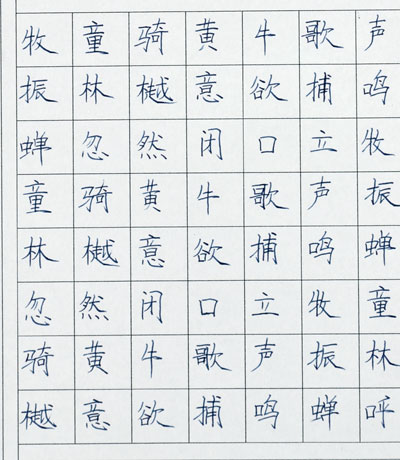 牧童骑黄牛歌声
振林樾意欲捕鸣
蝉忽然闭口立牧
童骑黄牛歌声振
林樾意欲捕鸣蝉
忽然闭口立牧童
骑黄牛歌声振林
樾意欲捕鸣蝉呼